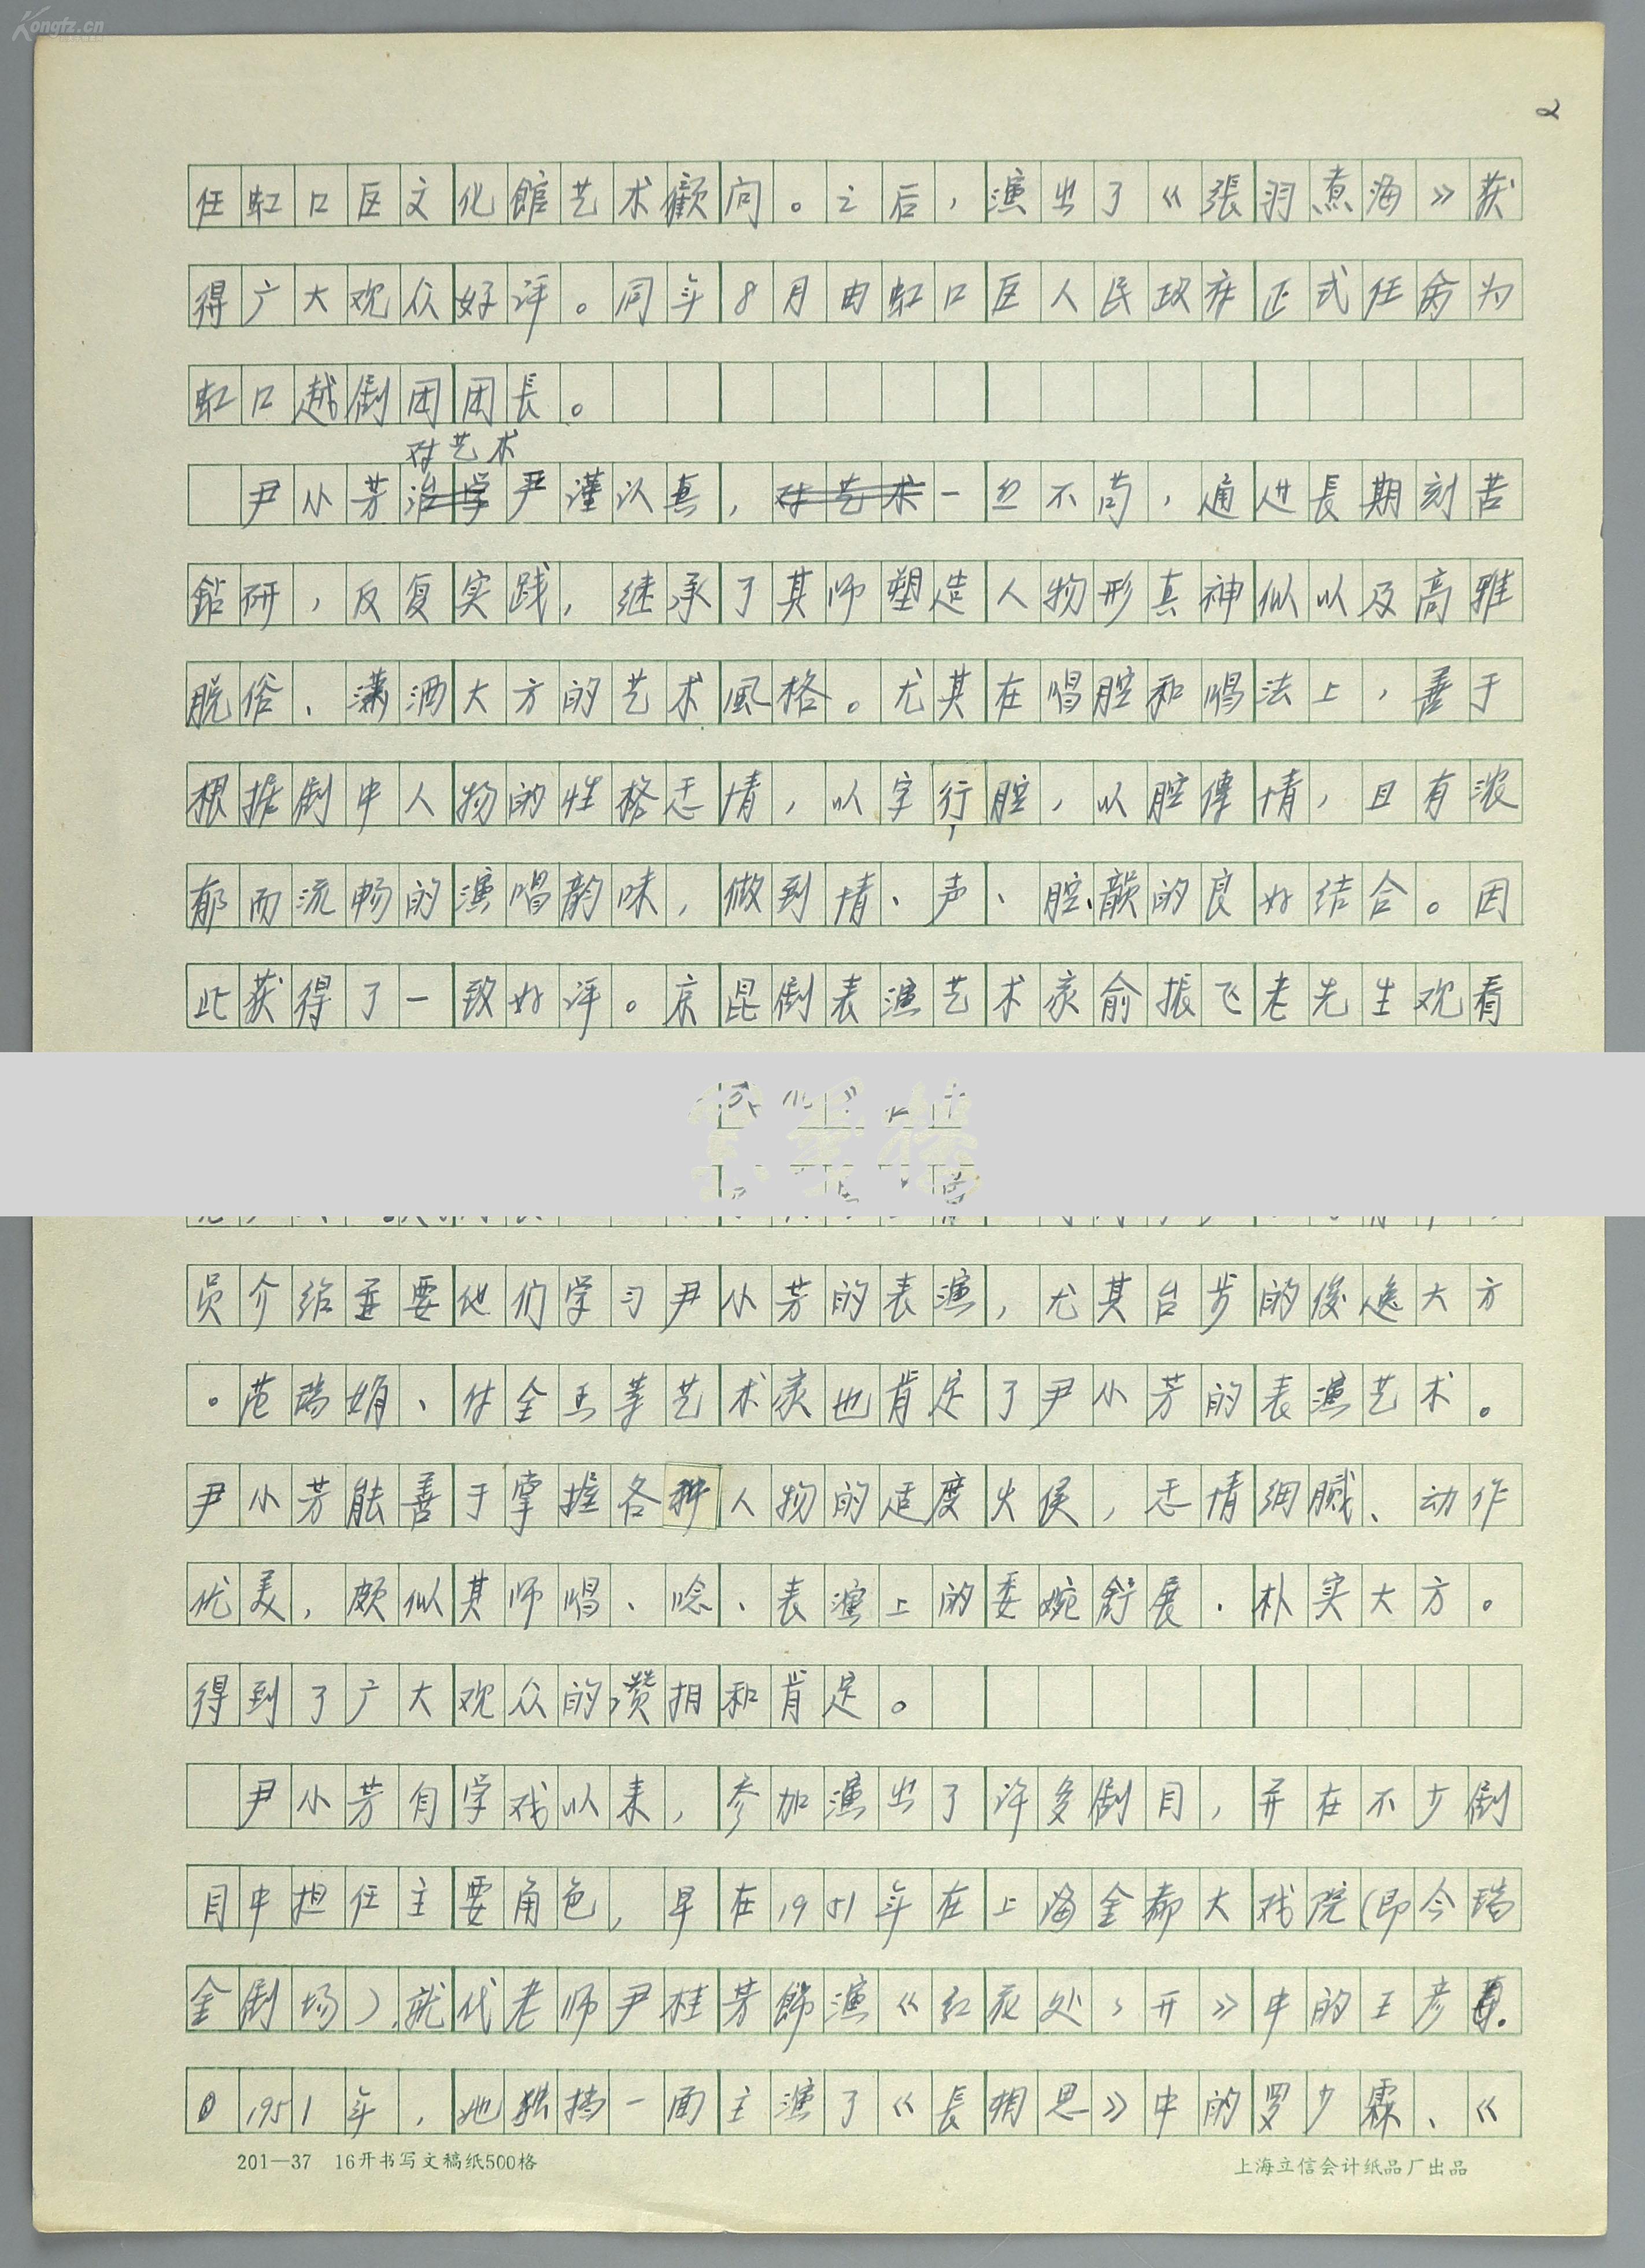 Kongfz.cn
2
任虹口区文化館艺术顧问。之后，演出了《張羽煮海》获
得广大观众好评。同年8月由虹口区人民政府正式任命为
虹口越剧团团長。
对艺术
尹小芳治学严谨认真，对艺术一丝不苟，通过長期刻苦
鉆研，反复实践，继承了其师塑造人物形真神似以及高雅
脱俗、潇洒大方的艺术風格。尤其在唱腔和唱法上，善于
根据剧中人物的性格忐情，以字行腔，以腔傳情，且有浓
郁而流畅的演唱韵味，做到情、声、腔、韻的良好结合。因
此获得了一致好评。京昆剧表演艺术家俞振飞老先生观看
员介绍並要他们学习尹小芳的表演，尤其台步的俊逸大方
。范瑞娟、付全香等艺术家也肯定了尹小芳的表演艺术。
尹小芳能善于掌握各种人物的适度火侯，忐情细腻、动作
优美，颇似其师唱、唸、表演上的委婉舒展、朴实大方。
得到了广大观众的讚扬和肯定。
尹小芳自学戏以来，参加演出了许多剧目，并在不少剧
目中担任主要角色，早在1951年在上海金都大戏院（即今瑞
金剧场）,就代老师尹桂芳飾演《红花处々开》中的王彦青.
1951年，她独挡一面主演了《長相思》中的罗少霖、《
201—37 16开书写文稿纸500格
上海立信会计纸品厂出品